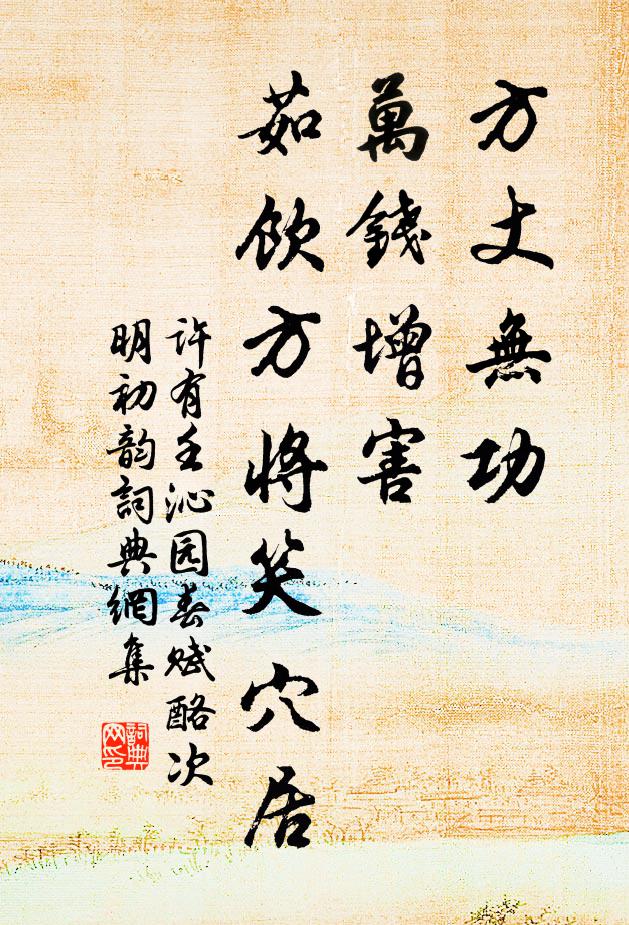 方丈無功
萬錢增害
茹飲方將笑穴居
许有壬沁园春赋酪次
明初韵詞典網集
詞典
网印